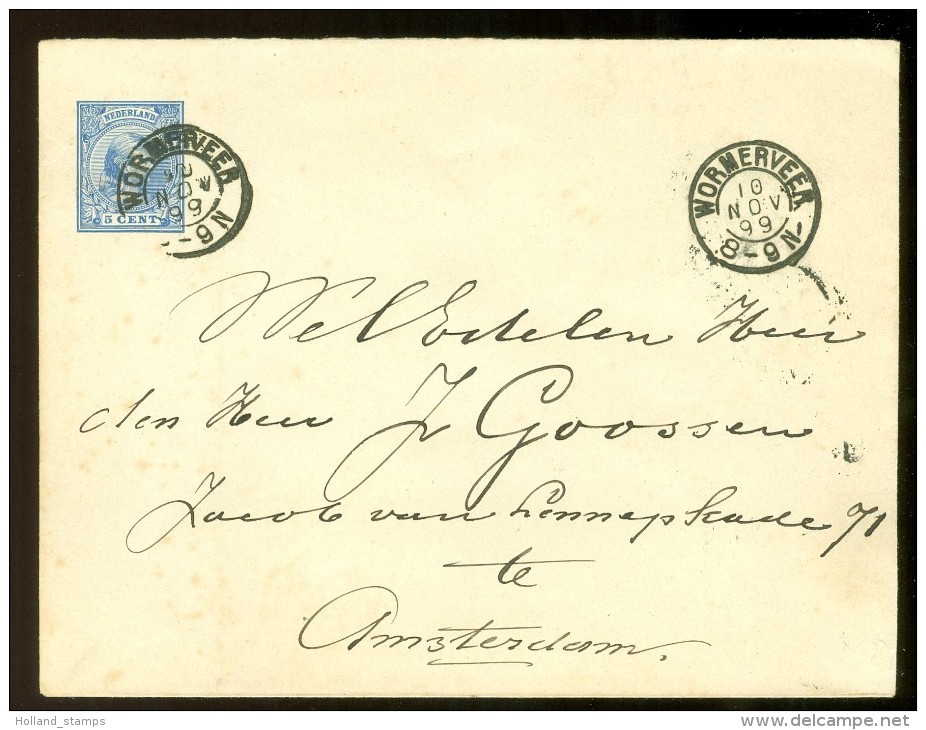 NEDERLAND
5 CENT
WORMERVEER
NOV
99
8-9 N
WORMERVEER
10
NOV
99
8-9 N
Wel Edelen Heer
den Heer J Goossen
Jacob van Lennepkade 71
te
Amsterdam.
Holland_stamps
www.delcampe.net